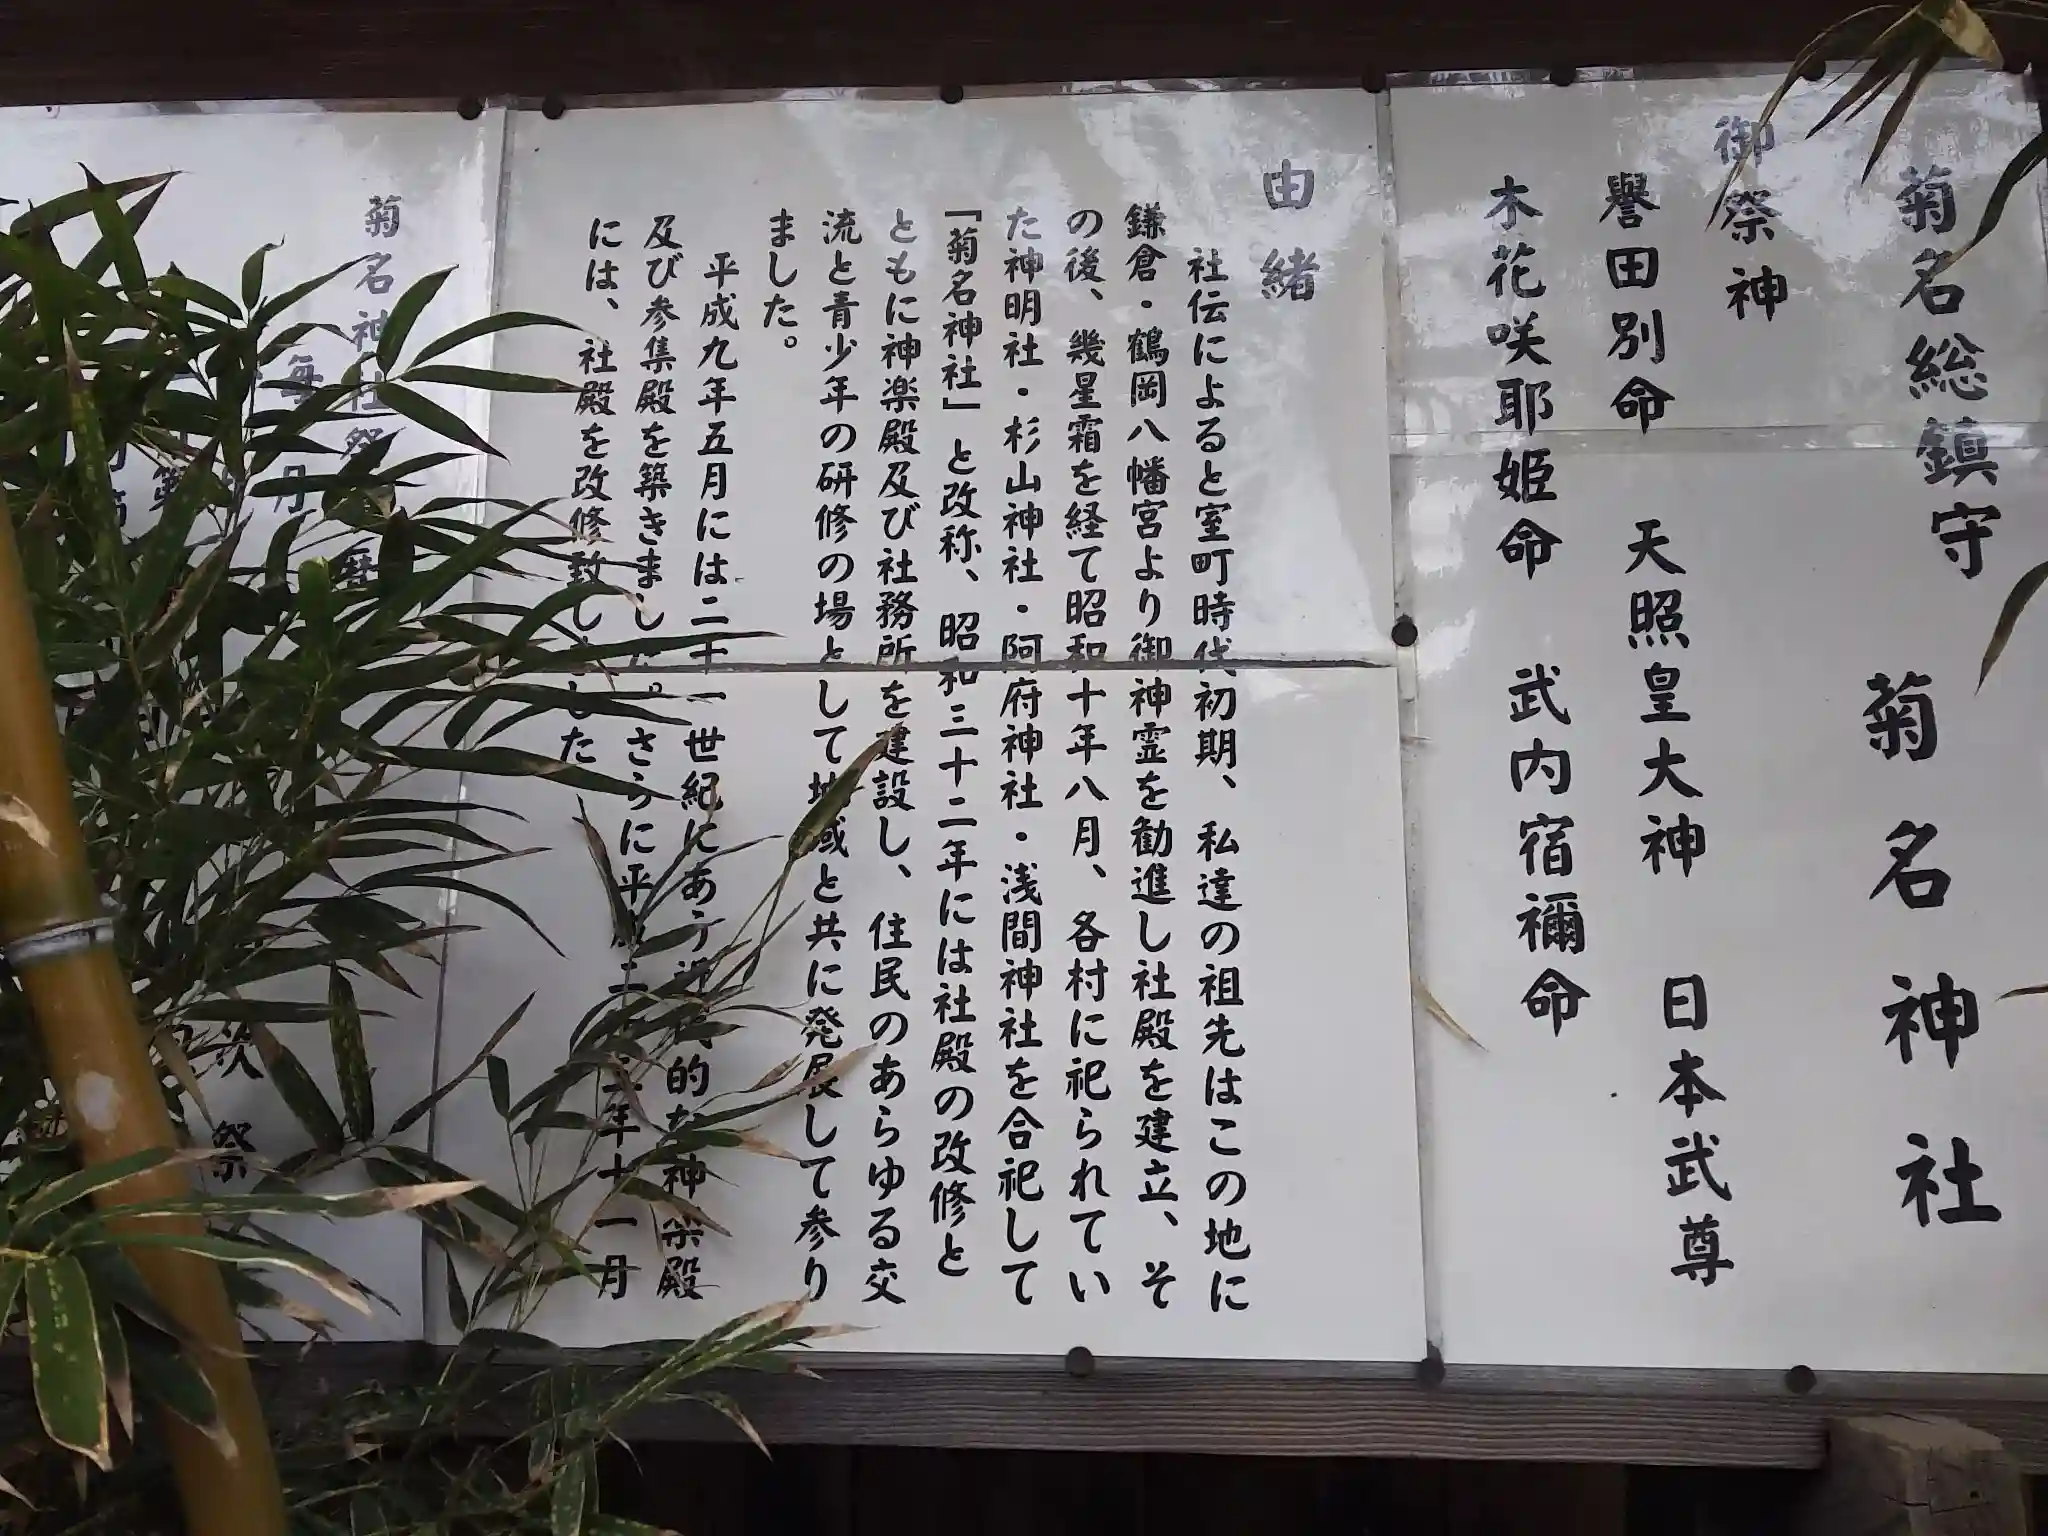 菊名総鎮守
菊名神社
御祭神
誉田別命 天照皇大神 日本武尊
木花咲耶姫命 武内宿禰命
由緒
社伝によると室町時代初期、私達の祖先はこの地に
鎌倉・鶴岡八幡宮より御神霊を勧進し社殿を建立、そ
の後、幾星霜を経て昭和十年八月、各村に祀られてい
た神明社・杉山神社・阿府神社・浅間神社を合祀して
「菊名神社」と改称、昭和三十二年には社殿の改修と
ともに神楽殿及び社務所を建設し、住民のあらゆる交
流と青少年の研修の場として地域と共に発展して参り
ました。
平成九年五月には二十一世紀にあう近代的な神楽殿
及び参集殿を築きました。さらに平成二十 年十一月
には、社殿を改修致しました
菊名神社祭暦
毎月
次祭